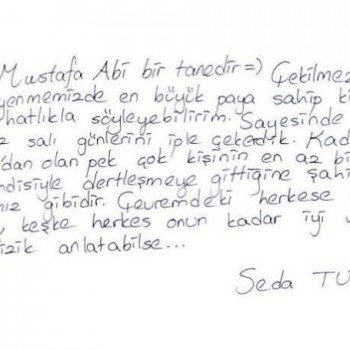 Mustafa Abi bir tanedir =) Çekilmez
yenmemizde en büyük paya sahip ki
hatlıkla söyleyebilirim. Sayesinde
z salı günlerini iple çekedik. Kad
'dan olan pek çok kişinin en az bi
ndisiyle dertleşmeye gittiğine şahi
mız gibidir. Çevremdeki herkese
, keşke herkes onun kadar iyi v
izik anlatabilse...
Seda TU